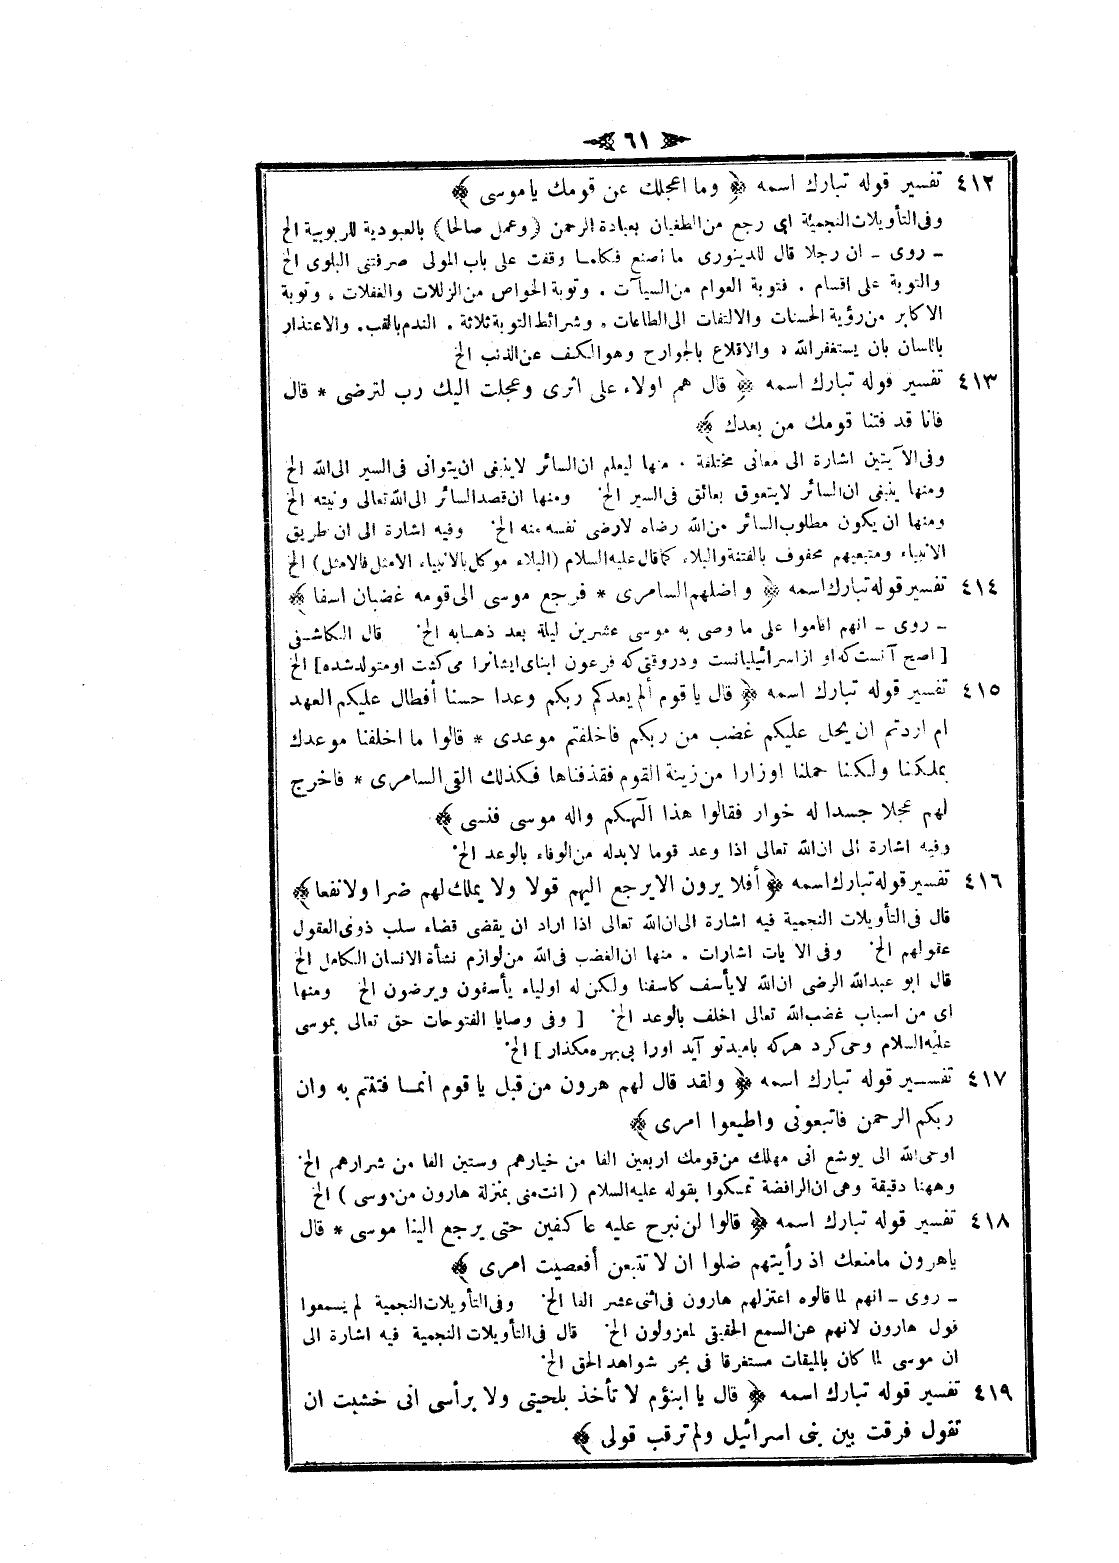 ٦١
٤١٢ تفسير قوله تبارك اسمه ﴿ وما اعجلك عن قومك ياموسى ﴾
وفى التأويلات النجمية اى رجع من الطغيان بعبادة الرحمن (وعمل صالحا) بالعبودية للربوبية الخ
ـ روى ـ ان رجلا قال للدينورى ما اصنع فكلما وقفت على باب المولى صرفتنى البلوى الخ
والتوبة على اقسام . فتوبة العوام من السيآت . وتوبة الخواص من الزلات والغفلات . وتوبة
الاكابر من رؤية الحسنات والالتفات الى الطاعات . وشرائط التوبة ثلاثة . الندم بالقلب . والاعتذار
باللسان بان يستغفر الله . والاقلاع بالجوارح وهو الكف عن الذنب الخ
٤١٣ تفسير قوله تبارك اسمه ﴿ قال هم اولاء على اثرى وعجلت اليك رب لترضى * قال
فانا قد فتنا قومك من بعدك ﴾
وفى الآيتين اشارة الى معانى مختلفة . منها ليعلم ان السائر لا ينبغى ان يتوانى فى السير الى الله الخ
ومنها ينبغى ان السائر لا يتعوق بعائق فى السير الخ ومنها ان قصد السائر الى الله تعالى ونيته الخ
ومنها ان يكون مطلوب السائر من الله رضاه لا رضى نفسه منه الخ وفيه اشارة الى ان طريق
الانبياء ومتبعيهم محفوف بالفتنة والبلاء كما قال عليه السلام (البلاء موكل بالانبياء الامثل فالامثل) الخ
٤١٤ تفسير قوله تبارك اسمه ﴿ واضلهم السامرى * فرجع موسى الى قومه غضبان اسفا ﴾
ـ روى ـ انهم اقاموا على ما وصى به موسى عشرين ليلة بعد ذهابه الخ قال الكاشفى
[ اصح آنست كه او از اسرائيليانست ودر وقتى كه فرعون ابناى ايشانرا مى كشت او متولد شده ] الخ
٤١٥ تفسير قوله تبارك اسمه ﴿ قال يا قوم ألم يعدكم ربكم وعدا حسنا أفطال عليكم العهد
ام اردتم ان يحل عليكم غضب من ربكم فاخلفتم موعدى * قالوا ما اخلفنا موعدك
بملكنا ولكنا حملنا اوزارا من زينة القوم فقذفناها فكذلك القى السامرى * فاخرج
لهم عجلا جسدا له خوار فقالوا هذا آلهكم واله موسى فنسى ﴾
وفيه اشارة الى ان الله تعالى اذا وعد قوما لابد له من الوفاء بالوعد الخ
٤١٦ تفسير قوله تبارك اسمه ﴿ أفلا يرون الا يرجع اليهم قولا ولا يملك لهم ضرا ولا نفعا ﴾
قال فى التأويلات النجمية فيه اشارة الى ان الله تعالى اذا اراد ان يقضى قضاء سلب ذوى العقول
عقولهم الخ وفى الآيات اشارات . منها ان الغضب فى الله من لوازم نشأة الانسان الكامل الخ
قال ابو عبدالله الرضى ان الله لا يأسف كاسفنا ولكن له اولياء يأسفون ويرضون الخ ومنها
اى من اسباب غضب الله تعالى اخلف بالوعد الخ [ وفى وصايا الفتوحات حق تعالى بموسى
عليه السلام وحى كرد هركه باميد تو آيد اورا بى بهره مكذار ] الخ
٤١٧ تفسير قوله تبارك اسمه ﴿ ولقد قال لهم هرون من قبل يا قوم انما فتنتم به وان
ربكم الرحمن فاتبعونى واطيعوا امرى ﴾
اوحى الله الى يوشع انى مهلك من قومك اربعين الفا من خيارهم وستين الفا من شرارهم الخ
وههنا دقيقة وهى ان الرافضة تمسكوا بقوله عليه السلام ( انت منى بمنزلة هارون من موسى ) الخ
٤١٨ تفسير قوله تبارك اسمه ﴿ قالوا لن نبرح عليه عاكفين حتى يرجع الينا موسى * قال
ياهرون مامنعك اذ رأيتهم ضلوا ان لا تتبعن أفعصيت امرى ﴾
ـ روى ـ انهم لما قالوه اعتزلهم هارون فى اثنى عشر الفا الخ وفى التأويلات النجمية لم يسمعوا
قول هارون لانهم عن السمع الحقيقى لمعزولون الخ قال فى التأويلات النجمية فيه اشارة الى
ان موسى لما كان بالميقات مستغرقا فى بحر شواهد الحق الخ
٤١٩ تفسير قوله تبارك اسمه ﴿ قال يا ابنؤم لا تأخذ بلحيتى ولا برأسى انى خشيت ان
تقول فرقت بين بنى اسرائيل ولم ترقب قولى ﴾